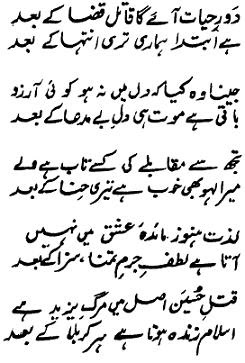 دَورِ حیات آئے گا قاتل قضا کے بعد
ہے ابتدا ہماری تری انتہا کے بعد
جینا وہ کیا کہ دل میں نہ ہو کوئی آرزو
باقی ہے موت ہی دلِ بے مدعا کے بعد
تجھ سے مقابلے کی کسے تاب ہے ولے
میرا لہو بھی خوب ہے تیری حنا کے بعد
لذت ہنوز مائدۂ عشق میں نہیں
آتا ہے لطفِ جرمِ تمنا، سزا کے بعد
قتلِ حُسین اصل میں مرگِ یزید ہے
اسلام زندہ ہوتا ہے ہر کربلا کے بعد